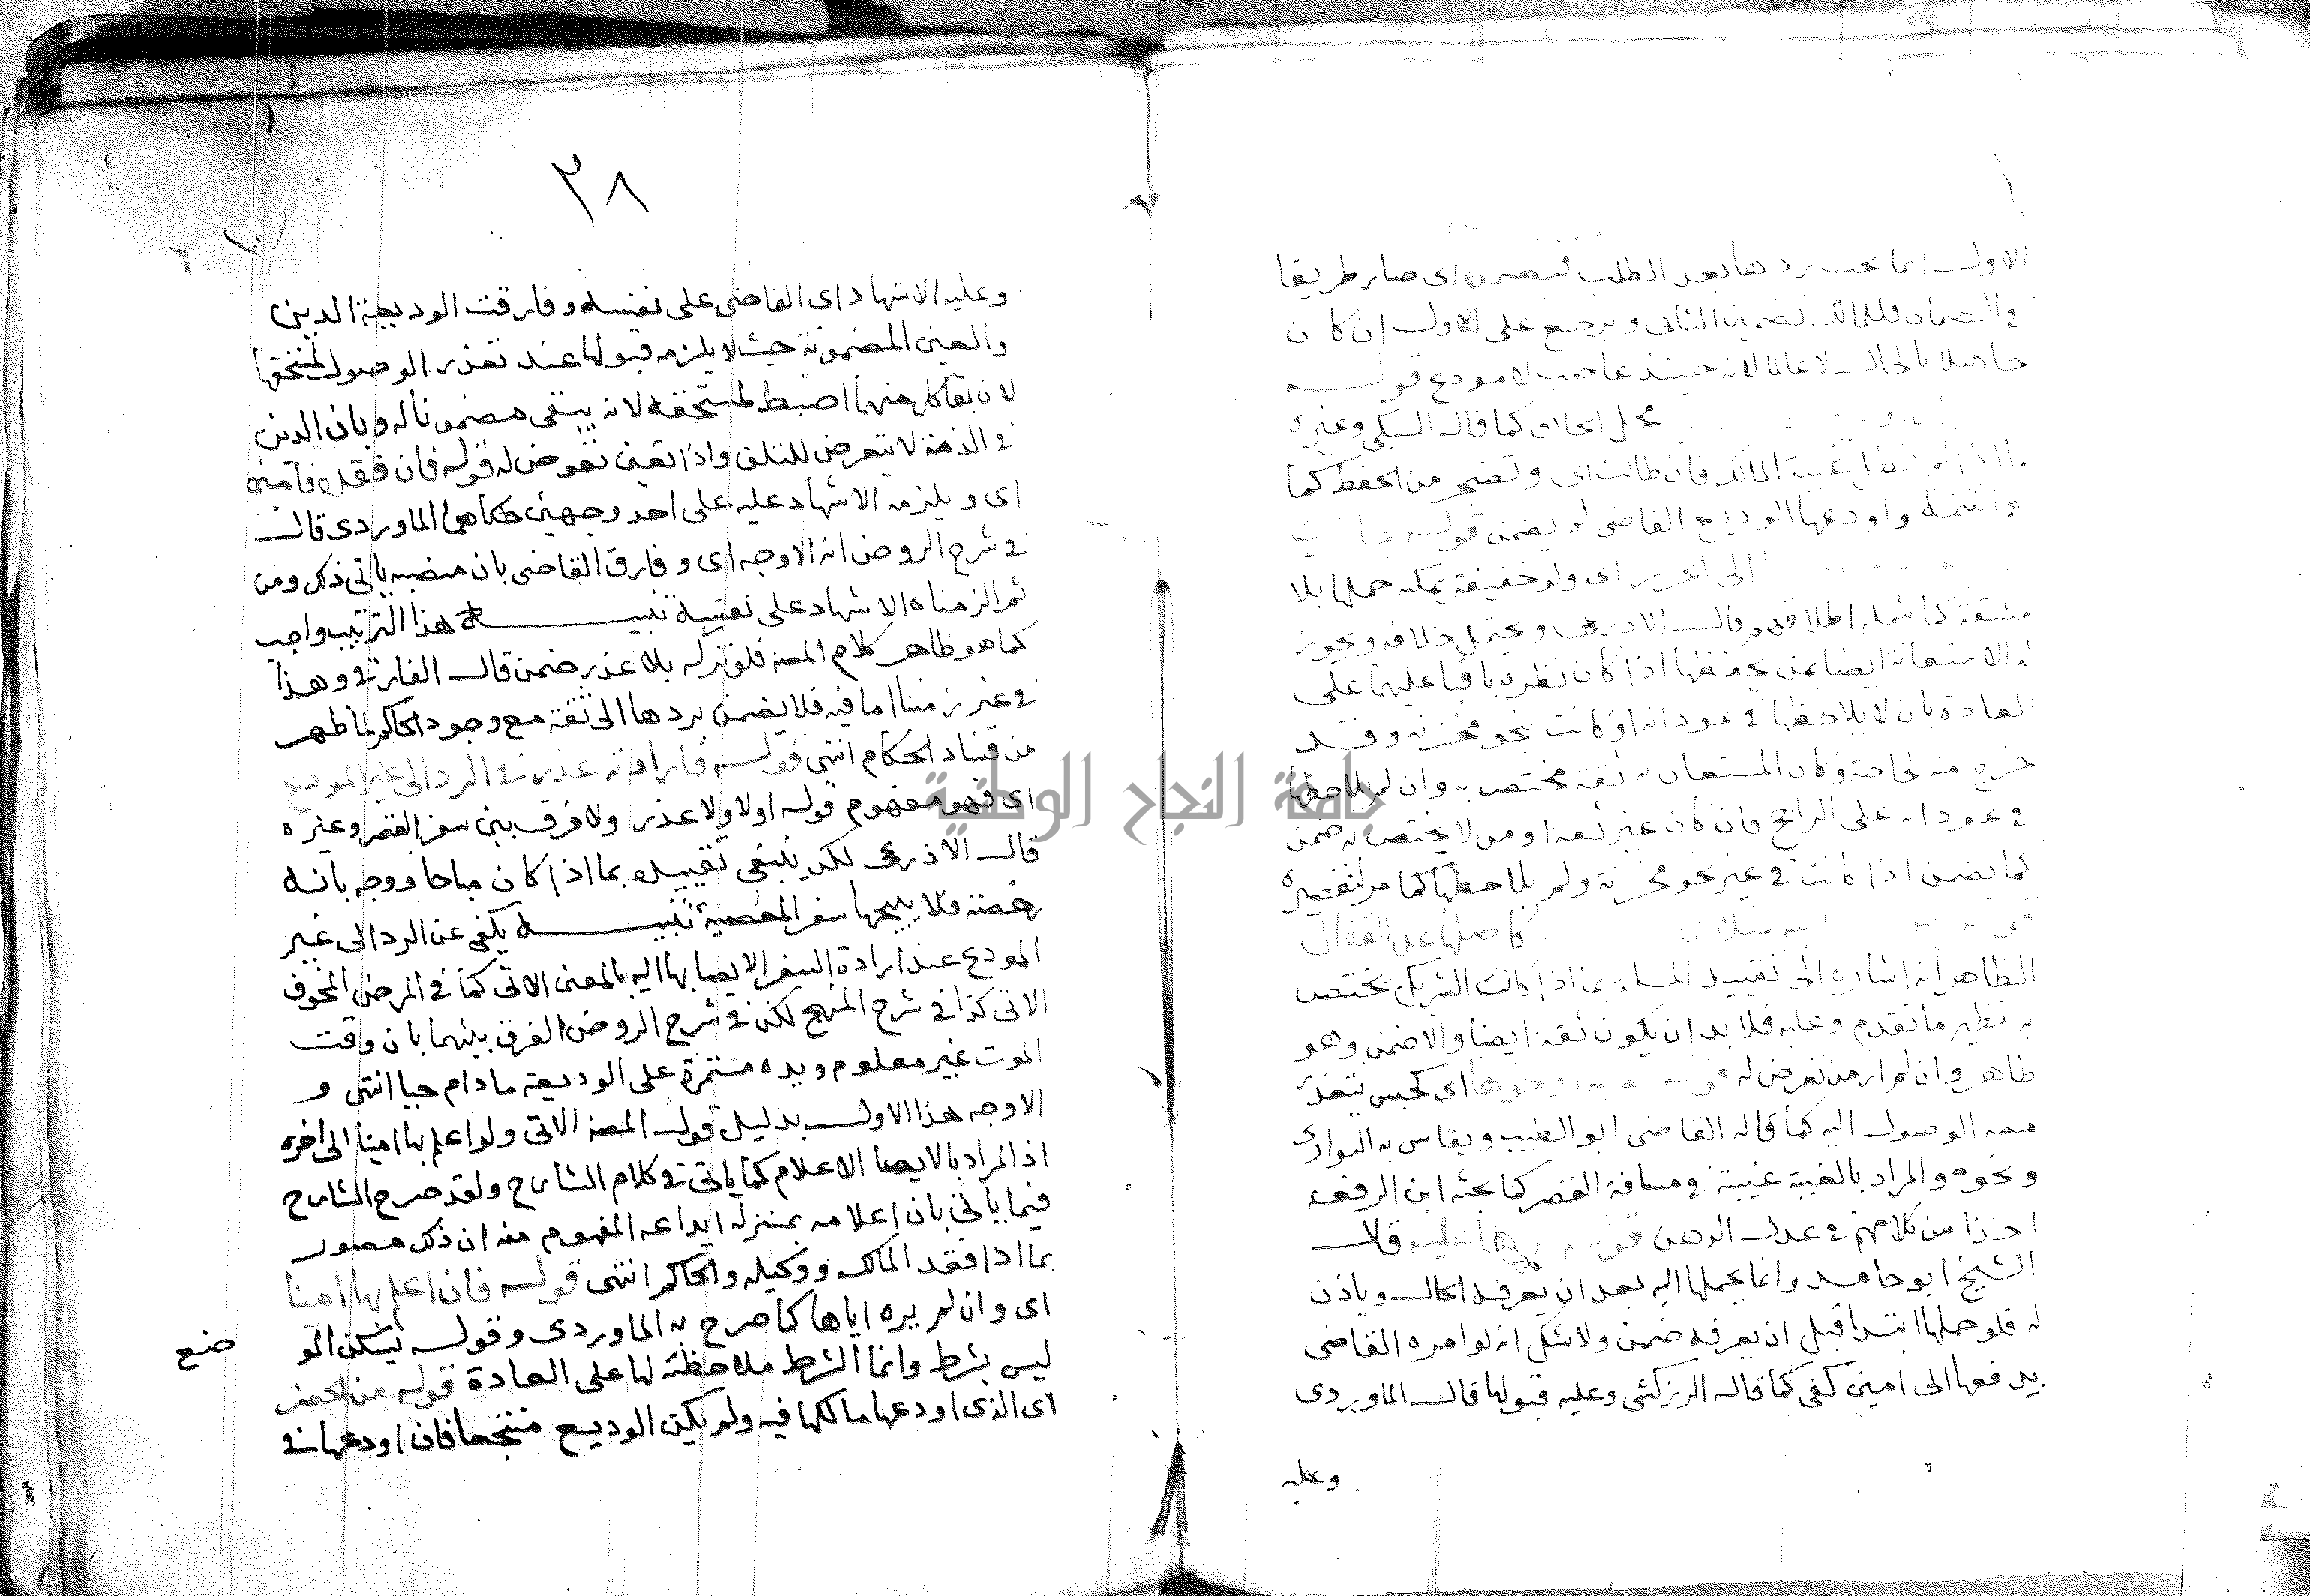 الاول انما يجب ردها بعد الطلب فيضمن اى صار طريقا
فى الضمان فللمالك تضمين الثانى ويرجع على الاول ان كان
جاهلا بالحال لا عالما لانه حينئذ غاصب لا مودع قوله
محل الخلاف كما قاله السبكى وغيره
غيبة المالك فان طالت اى وتضجر من الحفظ كما
واودعها الوديع القاضى لم يضمن قوله
الى اى ولو خفيفة يمكنه حملها بلا
مشقة كما شمله اطلاقهم قال الاذرعى ويحتمل خلافه ويجوز
له الاستعانة ايضا بمن يحفظها اذا كان نظره باقيا عليها على
العادة بان لا يلاحظها فى عوداته او كانت بنحو مخزنه وقد
خرج منه لحاجة وكان المستعان به ثقة مختص به وان لم يلاحظها
فى عوداته على الراجح فان كان غير ثقة او من لا يختص به ضمن
كما يضمن اذا كانت فى غير نحو مخزنه ولم يلاحظها كما مر لتقصيره
القفال
الظاهر انه اشارة الى تقييد المسئلة بما اذا كانت الشريك يختص
به نظير ما تقدم وعليه فلا بد ان يكون ثقة ايضا والا ضمن وهو
ظاهر وان لم ار من تعرض له اى كحبس يتعذر
معه الوصول اليه كما قاله القاضى ابو الطيب ويقاس به التوارى
ونحوه والمراد بالغيبة غيبة فى مسافة القصر كما بحثه ابن الرفعه
اخذا من كلامهم فى عدل الرهن قوله عليه قال
الشيخ ابو حامد وانما يحملها اليه بعد ان يعرفه الحال وياذن
له فلو حملها ابتدا قبل ان يعرفه ضمن ولا شك انه لو امره القاضى
بدفعها الى امين كفى كما قاله الزركشى وعليه قبولها قال الماوردى
وعليه
٣٨
وعليه الاشهاد اى القاضى على نفسه وفارقت الوديعة الدين
والعين المضمونة حيث لا يلزمه قبولها عند تعذر الوصول لمستحقها
لان بقا كل منهما اضبط لمستحقه لانه يبقى مضمونا له وبان الدين
فى الذمة لا يتعرض للتلف واذا تعين تعرض له قوله فان فقد فامين
اى ويلزمه الاشهاد عليه على احد وجهين حكاهما الماوردى قال
فى شرح الروض انه الاوجه اى وفارق القاضى بان منصبه ياتى ذلك ومن
ثم الزمناه الاشهاد على نفسه تنبيـــه هذا الترتيب واجب
كما هو ظاهر كلام المصنف فلو تركه بلا عذر ضمن قال الفارقى وهذا
فى غير زمننا اما فيه فلا يضمن بردها الى ثقة مع وجود الحاكم لما ظهر
من فساد الحكام انتهى قوله فارادته عذر فى الرد الى غير المودع
اى فهو مفهوم قوله اولا ولا عذر ولا فرق بين سفر القصر وغيره
قال الاذرعى لكن ينبغى تقييده بما اذا كان مباحا ووجه بانه
رخصة فلا يبيحها سفر المعصية تنبيـــه يكفى عن الرد الى غير
المودع عند ارادة السفر الايصا بها اليه بالمعنى الاتى كما فى المرض المخوف
الاتى كذا فى شرح المنهج لكن فى شرح الروض الفرق بينهما بان وقت
الموت غير معلوم ويده مستمرة على الوديعة ما دام حيا انتهى و
الاوجه هذا الاول بدليل قول المصنف الاتى ولو اعلم بها امينا الى اخره
اذ المراد بالايصا الاعلام كما ياتى فى كلام الشارح ولقد صرح الشارح
فيما ياتى بان اعلامه بمنزلة ايداعه المفهوم منه ان ذلك مصور
بما اذا فقد المالك ووكيله والحاكم انتهى قوله فان اعلم بها امينا
اى وان لم يره اياها كما صرح به الماوردى وقوله يسكن المو
ضع
ليس بشرط وانما الشرط ملاحظته لها على العادة قوله من الحضر
اى الذى اودعها مالكها فيه ولم يكن الوديع منتجعا فان اودعها فى
جامعة النجاح الوطنية